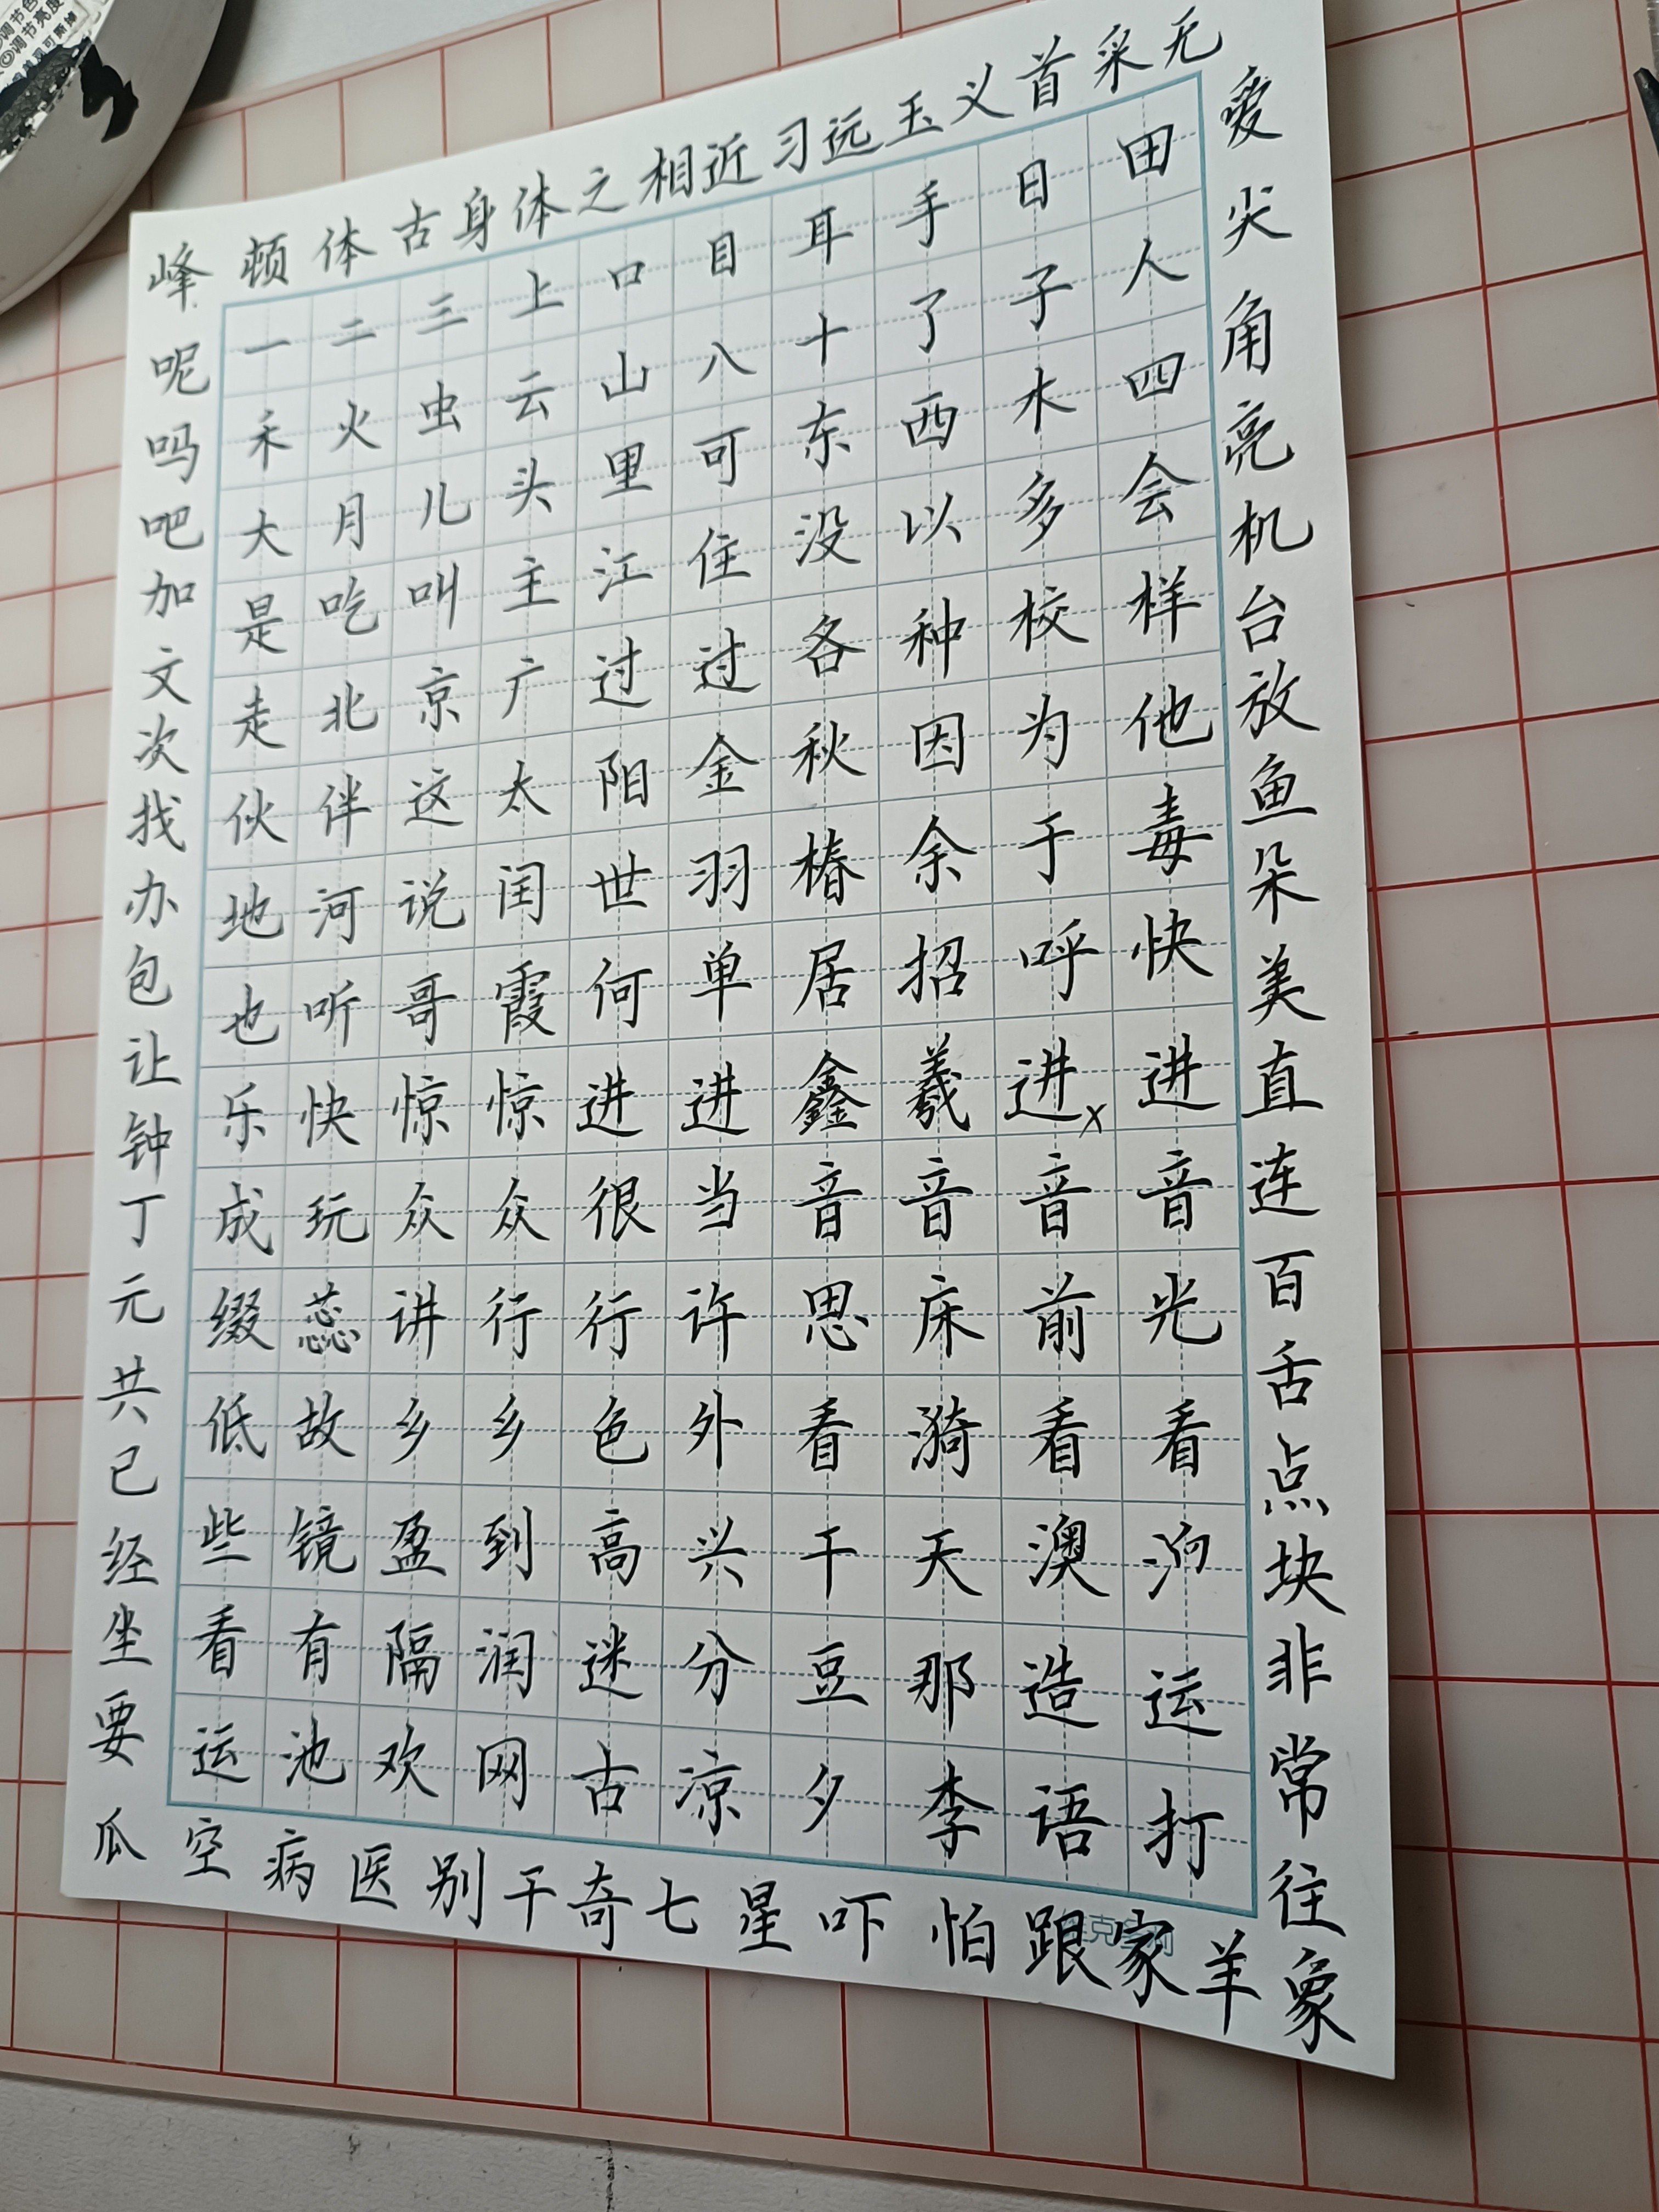 调节亮度
峰顿体古身体之相近习远玉义首采无
呢吗吧加文次找办包让钟丁元共已经坐要瓜
一二三上口目耳手日田
禾火虫云山八十了子人
大月儿头里可东西木四
是吃叫主江住没以多会
走北京广过过各种校样
伙伴这太阳金秋因为他
地河说闰世羽椿余于毒
也听哥霞何单居招呼快
乐快惊惊进进鑫羲进x进
成玩众众很当音音音音
缀蕊讲行行许思床前光
低故乡乡色外看漪看看
些镜盈到高兴干天澳
看有隔润迷分豆那造运
运池欢网古凉夕李语打
爱尖角亮机台放鱼朵美直连百舌点块非常往象
空病医别干奇七星吓怕跟家羊